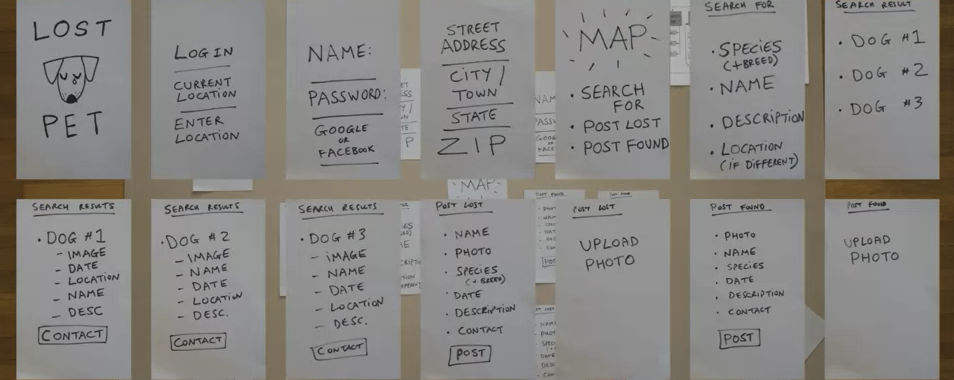 LOST
PET
LOG IN
CURRENT
LOCATION
ENTER
LOCATION
NAME:
PASSWORD:
GOOGLE
OR
FACEBOOK
STREET
ADDRESS
CITY /
TOWN
STATE
ZIP
MAP
• SEARCH
FOR
• POST LOST
• POST FOUND
SEARCH FOR
• SPECIES
(+BREED)
• NAME
• DESCRIPTION
• LOCATION
(IF DIFFERENT)
SEARCH RESULT
• DOG #1
• DOG #2
• DOG #3
SEARCH RESULTS
• DOG #1
– IMAGE
– DATE
– LOCATION
– NAME
– DESC
CONTACT
SEARCH RESULTS
• DOG #2
– IMAGE
– NAME
– DATE
– LOCATION
– DESC.
CONTACT
SEARCH RESULTS
• DOG #3
– IMAGE
– NAME
– DATE
– LOCATION
– DESC.
CONTACT
POST LOST
• NAME
• PHOTO
• SPECIES
(+BREED)
• DATE
• DESCRIPTION
• CONTACT
POST
POST LOST
UPLOAD
PHOTO
POST FOUND
• PHOTO
• NAME
• SPECIES
• DATE
• DESCRIPTION
• CONTACT
POST
POST FOUND
UPLOAD
PHOTO
MAP